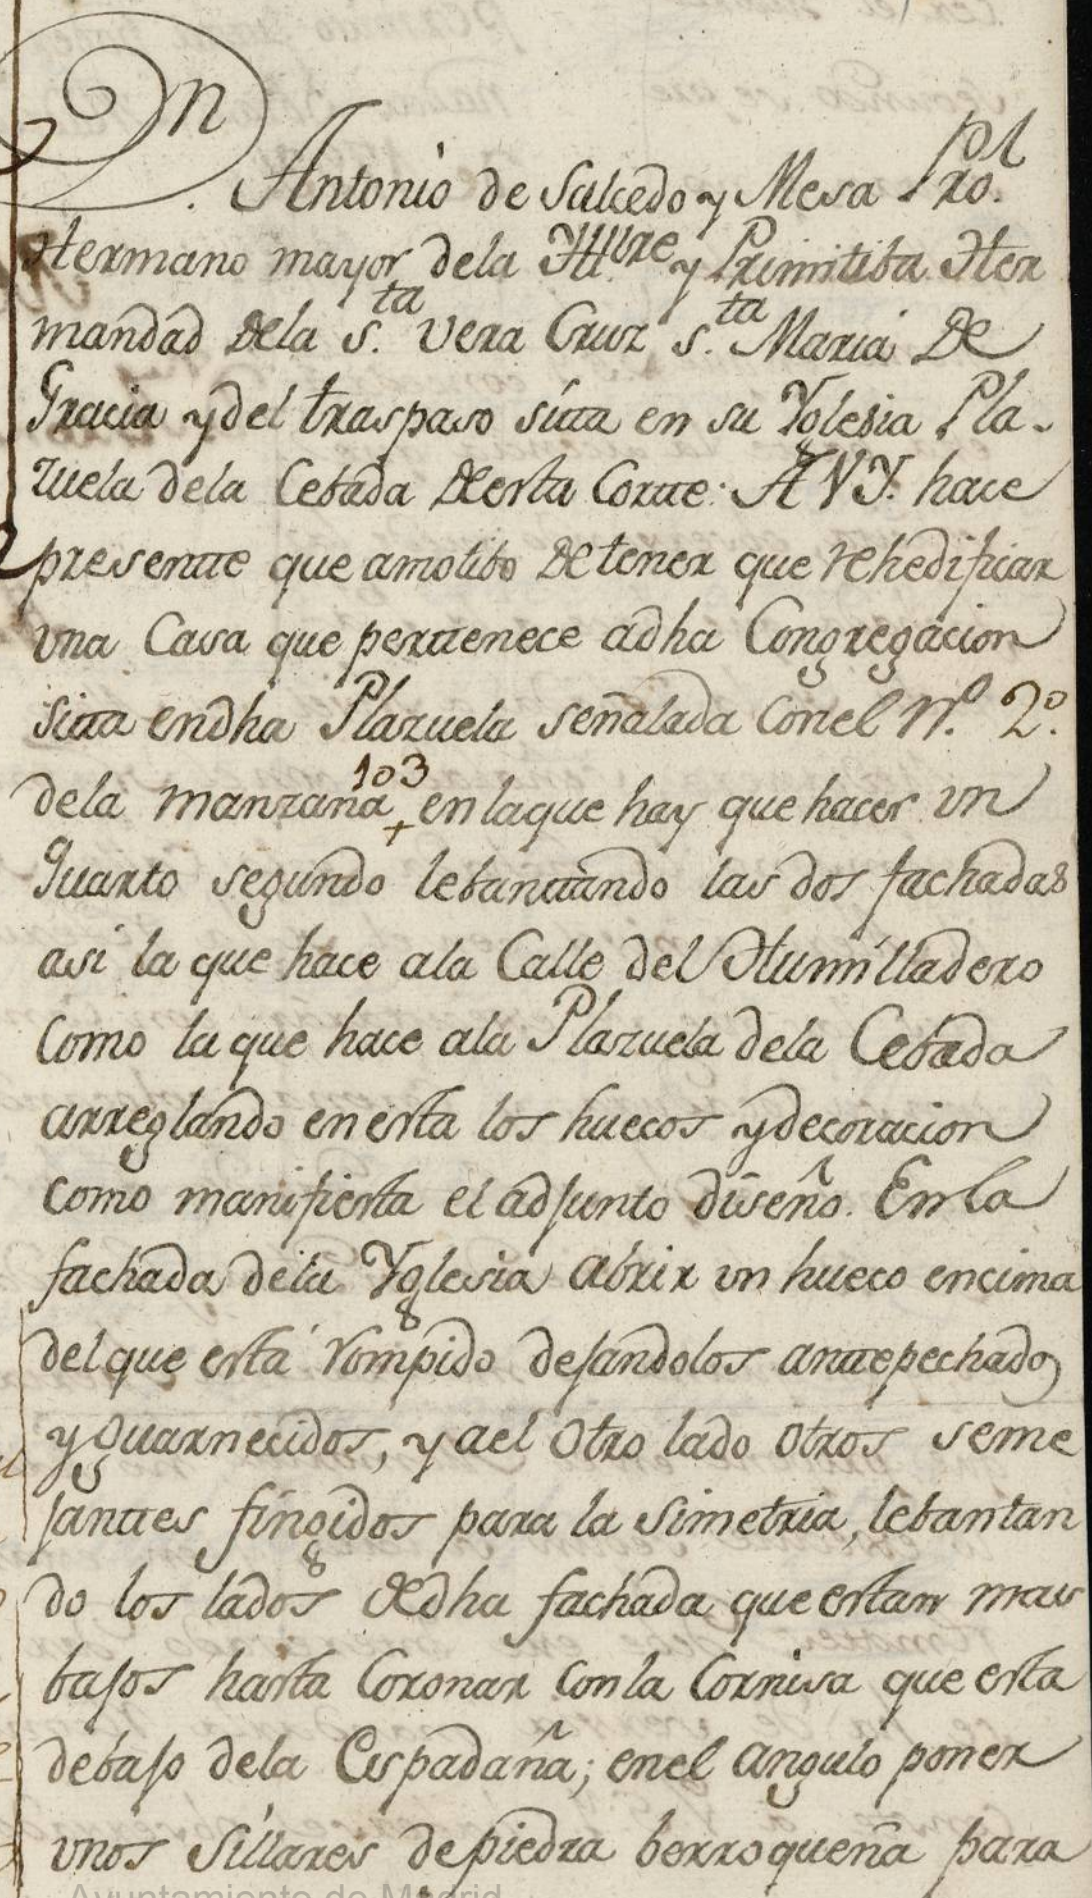 Dn
Antonio de Salcedo y Mesa Pbro.
Hermano mayor dela Illtre y Primitiba Her
mandad dela s.ta Vera Cruz s.ta Maria De
Gracia y del traspaso sitta en su Yglesia Pla-
zuela dela Cebada De esta Corte: A V Y. hace
presente que amotibo De tener que rehedificar
vna Casa que pertenece adha Congregacion
sitta endha Plazuela señalada Con el N.º 2.º
dela manzana 103 + en laque hay que hacer vn
Quarto segundo lebantando las dos fachadas
asi la que hace ala Calle del Humilladero
Como la que hace ala Plazuela dela Cebada
arreglando en esta los huecos y decoracion
Como manifiesta el adjunto diseño. En la
fachada dela Yglesia abrir vn hueco encima
del que está rompido dejandolos antepechados
y guarnecidos, y a el otro lado otros seme
jantes fingidos para la Simetria, lebantan
do los lados de dha fachada que estan mas
bajos hasta Coronar Con la Cornisa que esta
debajo dela Espadaña; en el angulo poner
vnos Sillares de piedra berroqueña para
Ayuntamiento de Madrid